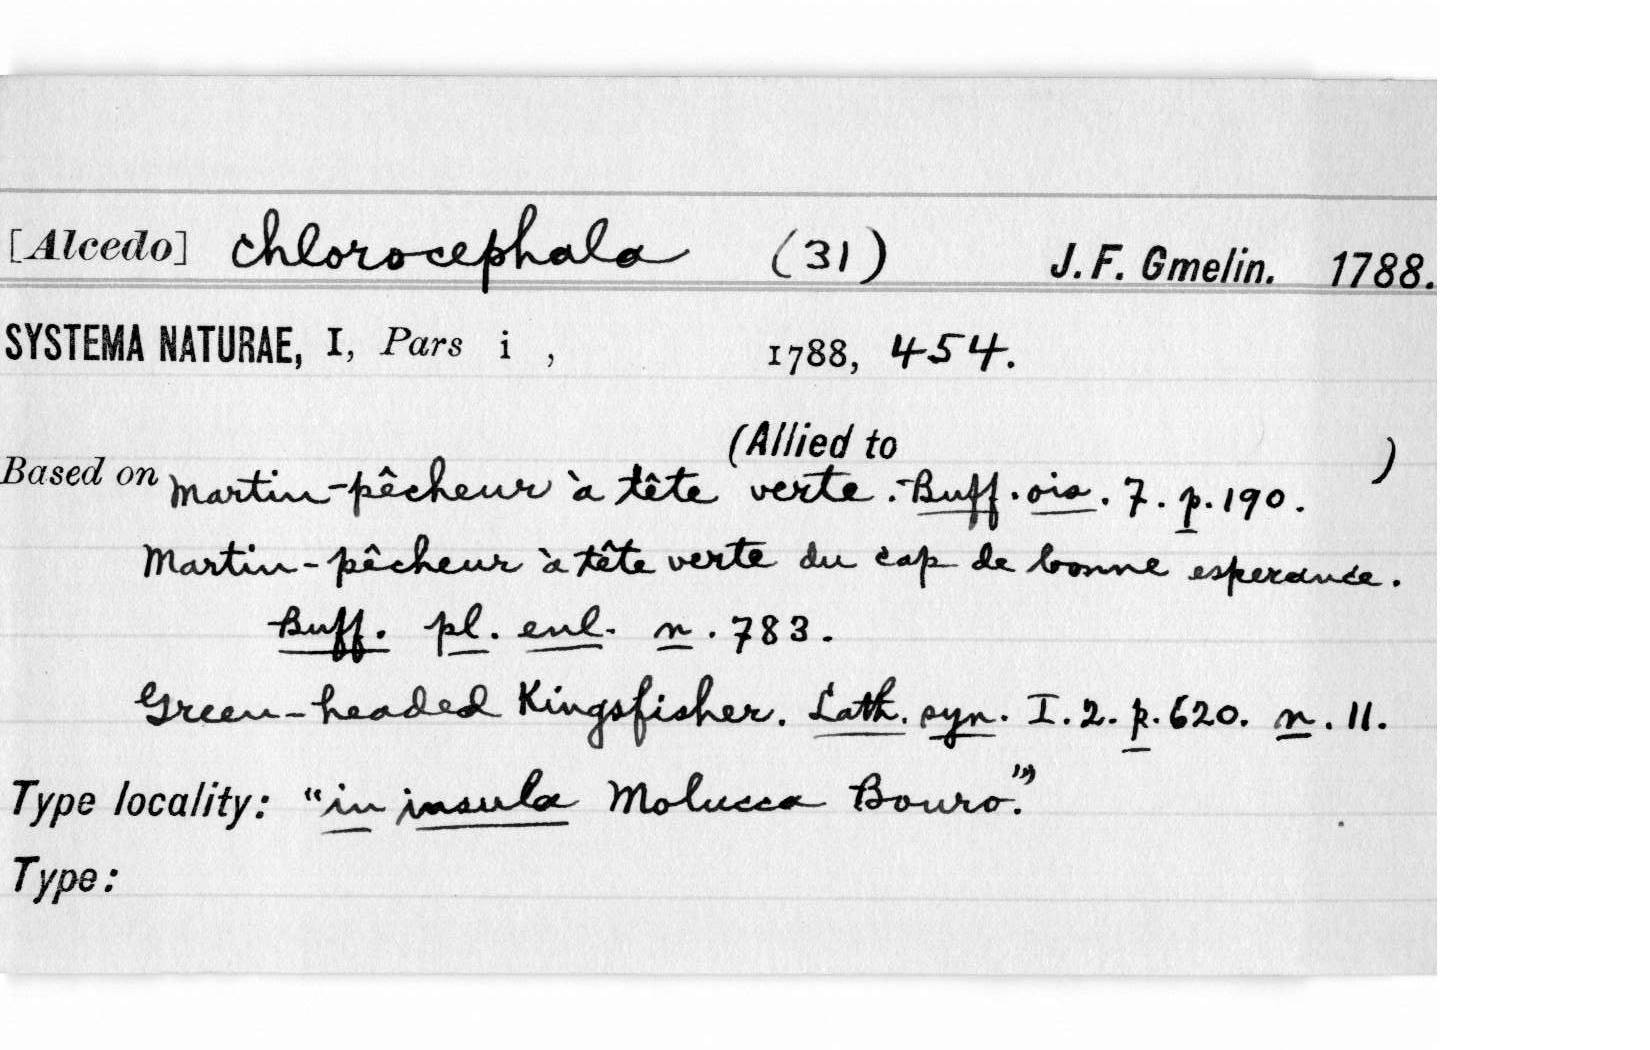 [Alcedo] chlorocephala (31) J. F. Gmelin. 1788.
SYSTEMA NATURAE, I, Pars i , 1788, 454.
(Allied to )
Based on Martin-pêcheur à tête verte. Buff. ois. 7. p. 190.
Martin-pêcheur à tête verte du cap de bonne esperance.
Buff. pl. enl. n. 783.
Green-headed Kingsfisher. Lath. syn. I. 2. p. 620. n. 11.
Type locality: "in insula Molucca Bouro."
Type: